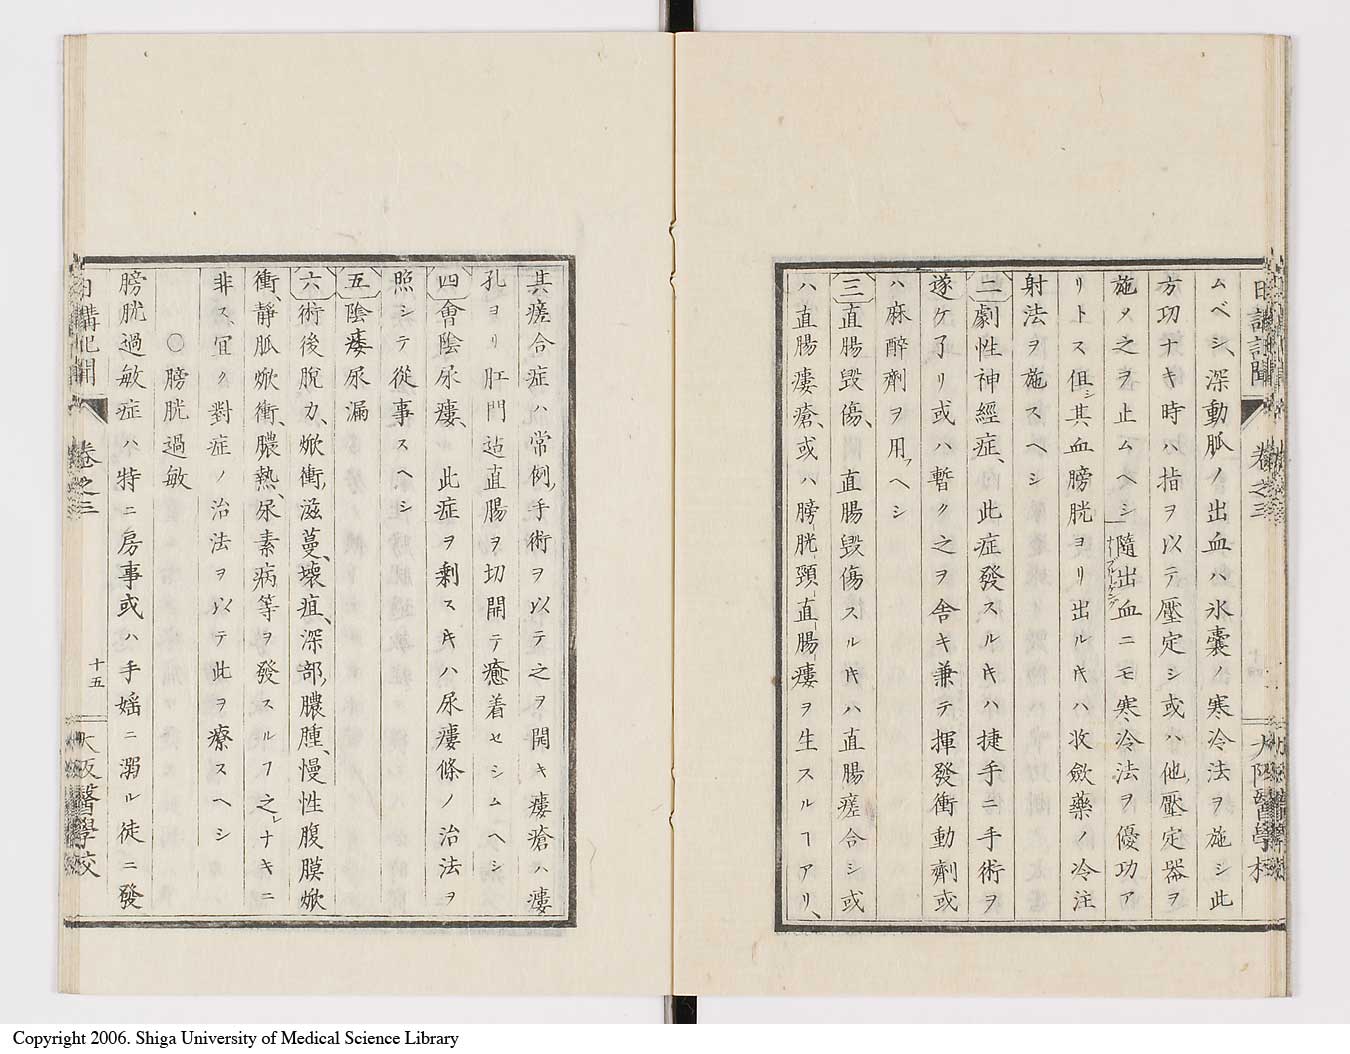 ムベシ、深動脈ノ出血ハ氷嚢ノ寒冷法ヲ施シ此
方功ナキ時ハ指ヲ以テ壓定シ或ハ他ノ壓定器ヲ
施メ之ヲ止ムヘシ隨出血ニモ寒冷法ヲ優功ア
リトス但シ其血膀胱ヨリ出ルキハ收斂藥ノ冷注
射法ヲ施スヘシ
二劇性神經症、此症發スルキハ捷手ニ手術ヲ
遂ケ了リ或ハ暫ク之ヲ舎キ兼テ揮發衝動劑或
ハ麻醉劑ヲ用フヘシ
三直腸毀傷、直腸毀傷スルキハ直腸瘥合シ或
ハ直腸瘻瘡、或ハ膀胱頸直腸瘻ヲ生スルヿアリ、
日講記聞 卷之三 大阪醫學校
其瘥合症ハ常例、手術ヲ以テ之ヲ開キ瘻瘡ハ瘻
孔ヨリ肛門迠直腸ヲ切開テ癒着セシムヘシ
四會陰尿瘻、此症ヲ剩スキハ尿瘻條ノ治法ヲ
照シテ從事スヘシ
五陰痿尿漏
六術後脫力、焮衝、滋蔓、壊疽、深部膿腫、慢性腹膜焮
衝、静脈焮衝、膿熱、尿素病等ヲ發スルフ之レナキニ
非ス、宜ク對症ノ治法ヲ以テ此ヲ療スヘシ
〇膀胱過敏
膀胱過敏症ハ特ニ房事或ハ手婬ニ溺ル徒ニ發
日講記聞 卷之三 十五 大阪醫學校
Copyright 2006. Shiga University of Medical Science Library